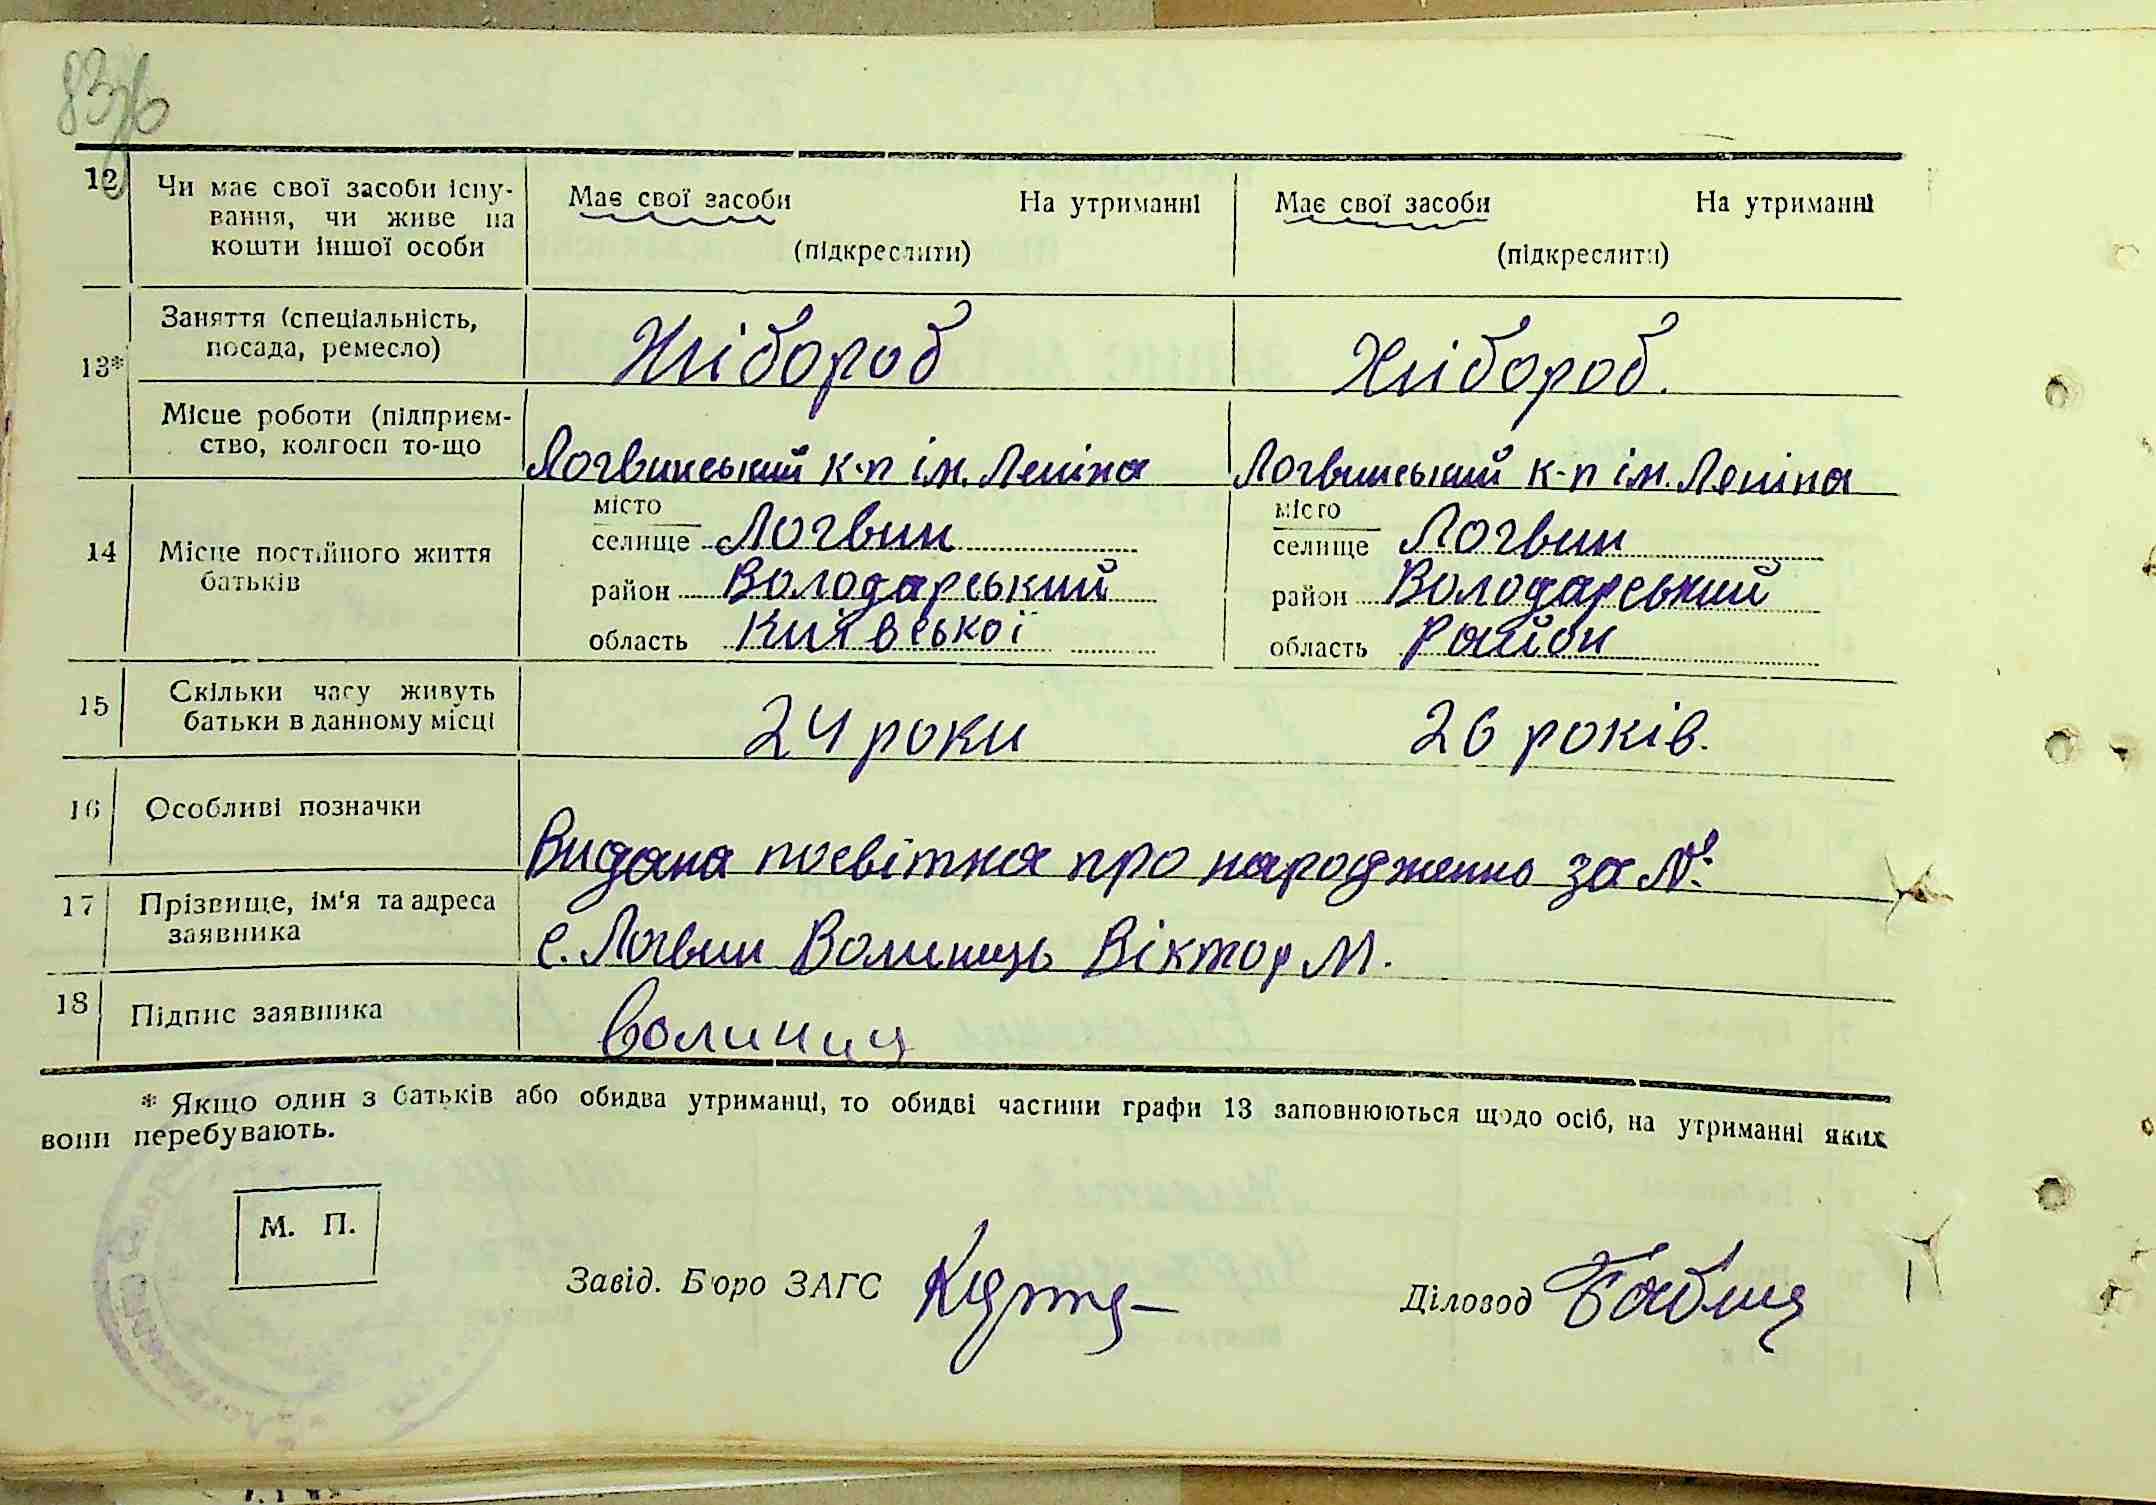 83зв
12 Чи має свої засоби існу-
вання, чи живе на
кошти іншої особи
Має свої засоби На утриманні
(підкреслити)
Має свої засоби На утриманні
(підкреслити)
13* Заняття (спеціальність,
посада, ремесло)
Хлібороб
Хлібороб.
Місце роботи (підприєм-
ство, колгосп то-що
Логвинський к-п ім. Леніна
Логвинський к-п ім. Леніна
14 Місце постійного життя
батьків
місто
селище Логвин
район Володарський
область Київської
місто
селище Логвин
район Володарський
область район
15 Скільки часу живуть
батьки в данному місці
24 роки
26 років.
16 Особливі позначки
Видана посвітка про народженно за №
17 Прізвище, ім'я та адреса
заявника
с. Логвин Волинець Віктор М.
18 Підпис заявника
Волинец
* Якщо один з батьків або обидва утриманці, то обидві частини графи 13 заповнюються щодо осіб, на утриманні яких
вони перебувають.
М. П.
Завід. Бюро ЗАГС
Діловод